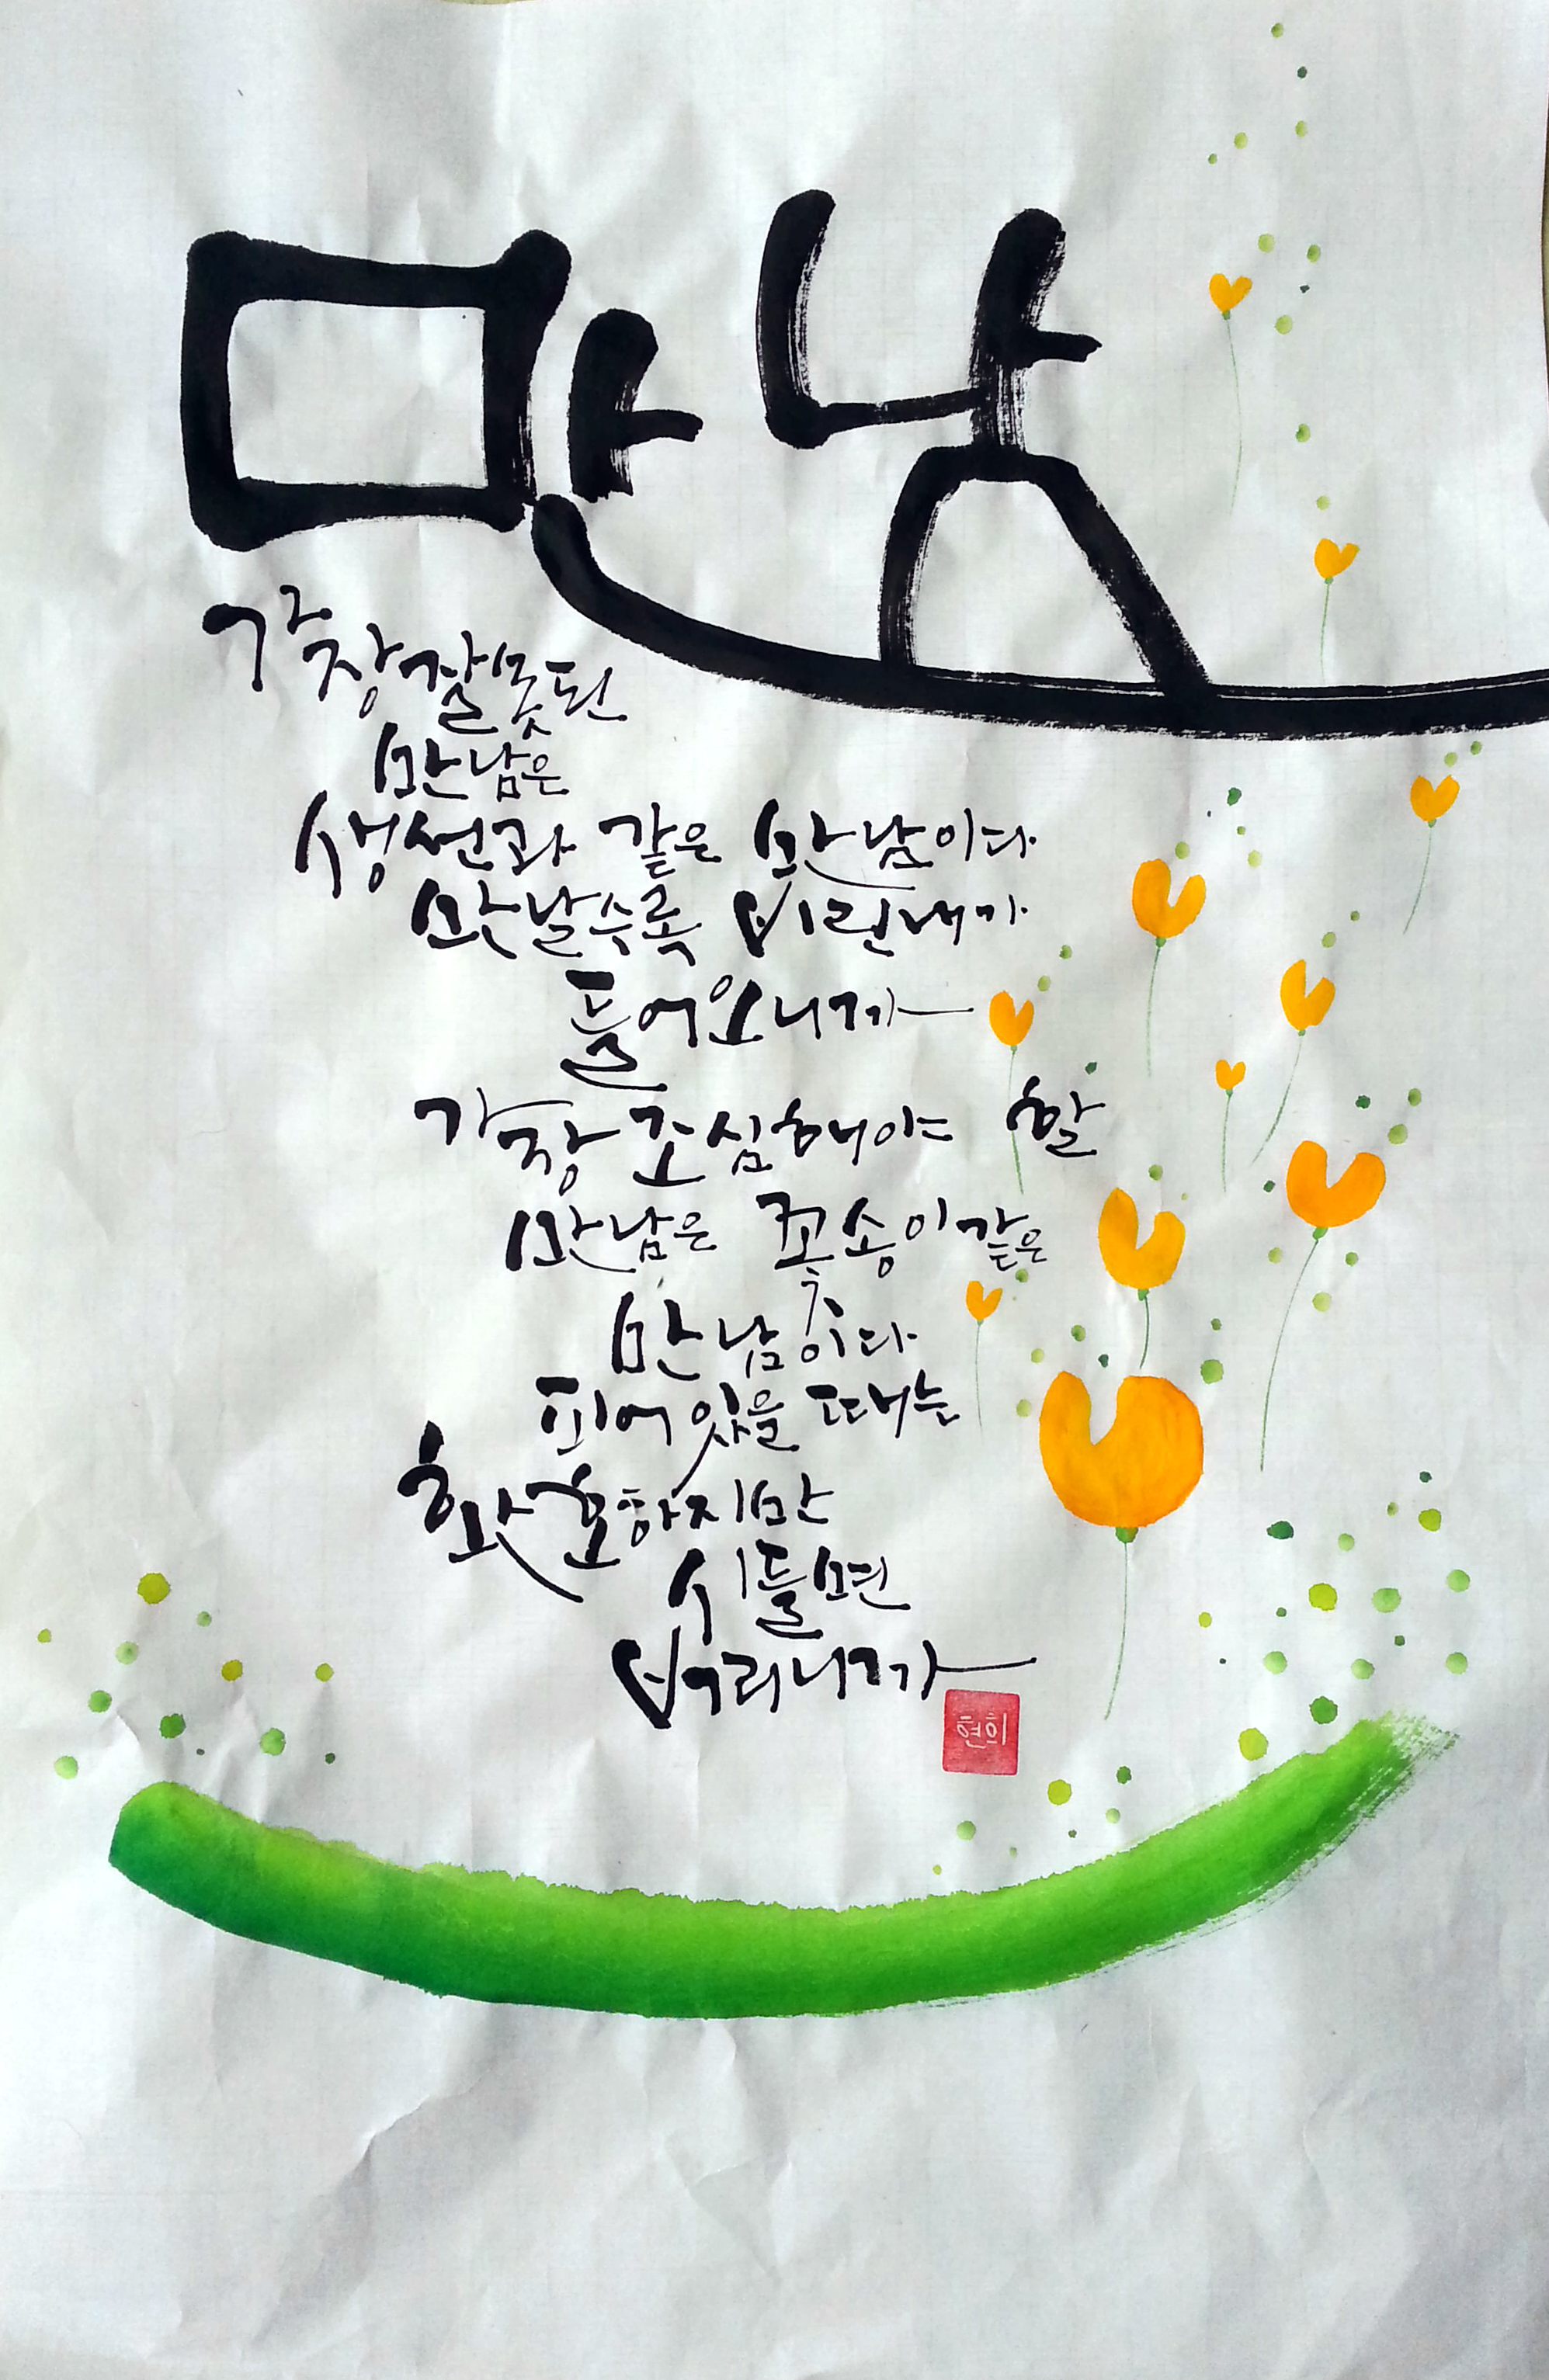 만남
가장 잘못된
만남은
생선과 같은 만남이다
만날수록 비린내가
들어오니까
가장 조심해야 할
만남은 꽃송이 같은
만남이다
피어있을 때는
환호하지만
시들면
버리니까
현의